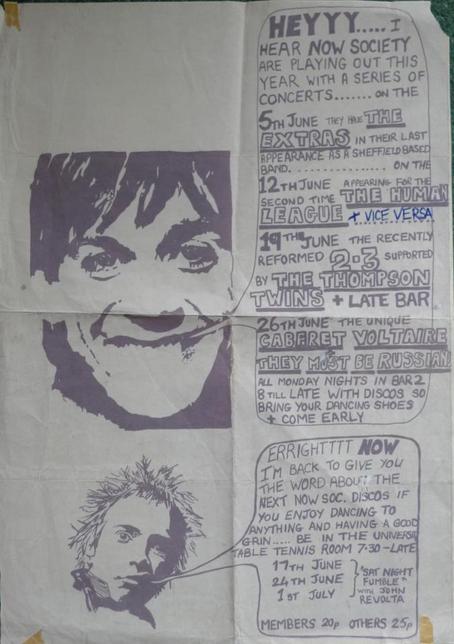 HEYYY..... I
HEAR NOW SOCIETY
ARE PLAYING OUT THIS
YEAR WITH A SERIES OF
CONCERTS....... ON THE
5TH JUNE THEY HAVE THE
EXTRAS IN THEIR LAST
APPEARANCE AS A SHEFFIELD BASED
BAND.................. ON THE
12TH JUNE APPEARING FOR THE
SECOND TIME THE HUMAN
LEAGUE + VICE VERSA
19THE JUNE THE RECENTLY
REFORMED 2.3 SUPPORTED
BY THE THOMPSON
TWINS + LATE BAR
26TH JUNE THE UNIQUE
CABERET VOLTAIRE
THEY MUST BE RUSSIAN
ALL MONDAY NIGHTS IN BAR 2
8 TILL LATE WITH DISCOS SO
BRING YOUR DANCING SHOES
+ COME EARLY
ERRIGHTTTT NOW
I'M BACK TO GIVE YOU
THE WORD ABOUT THE
NEXT NOW SOC. DISCOS IF
YOU ENJOY DANCING TO
ANYTHING AND HAVING A GOOD
GRIN..... BE IN THE UNIVERSITY
TABLE TENNIS ROOM 7·30-LATE
17TH JUNE
24TH JUNE
1ST JULY
"SAT NIGHT
FUMBLE"
WITH JOHN
REVOLTA
MEMBERS 20p OTHERS 25p